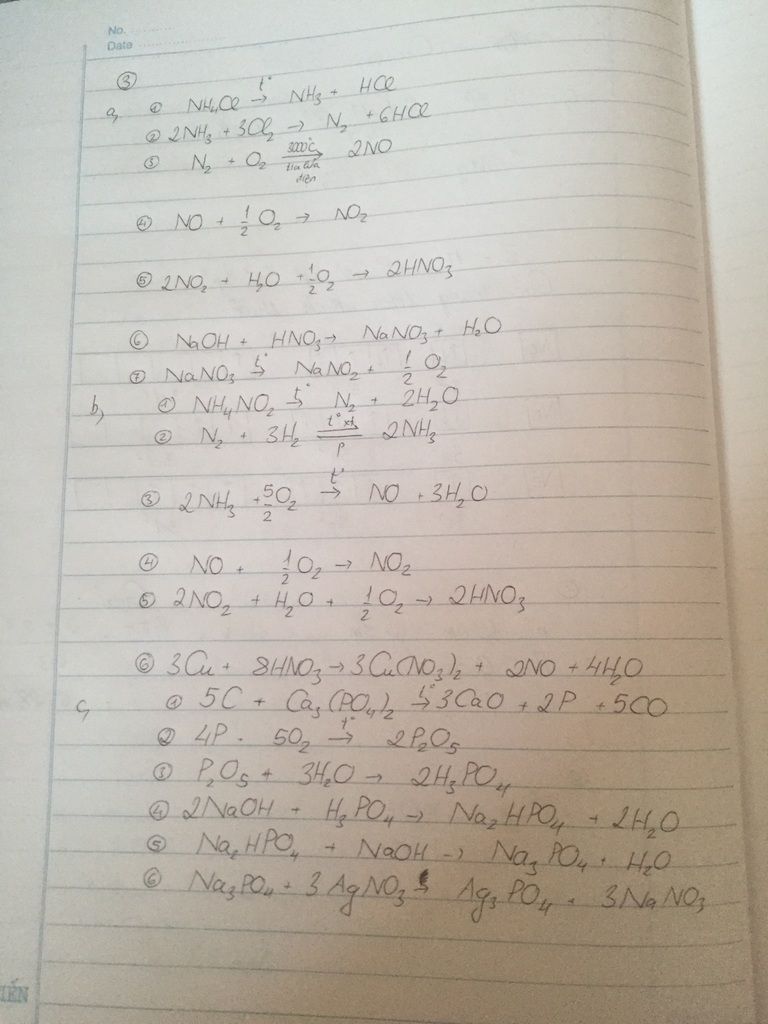 No.
Date
③
a, ① NH₄Cl →(t°) NH₃ + HCl
② 2NH₃ + 3Cl₂ → N₂ + 6HCl
③ N₂ + O₂ →(3000°C, tia lửa điện) 2NO
④ NO + 1/2 O₂ → NO₂
⑤ 2NO₂ + H₂O + 1/2 O₂ → 2HNO₃
⑥ NaOH + HNO₃ → NaNO₃ + H₂O
⑦ NaNO₃ →(t°) NaNO₂ + 1/2 O₂
b, ① NH₄NO₂ →(t°) N₂ + 2H₂O
② N₂ + 3H₂ ⇌(t° xt, p) 2NH₃
③ 2NH₃ + 5/2 O₂ →(t°) NO + 3H₂O
④ NO + 1/2 O₂ → NO₂
⑤ 2NO₂ + H₂O + 1/2 O₂ → 2HNO₃
⑥ 3Cu + 8HNO₃ → 3Cu(NO₃)₂ + 2NO + 4H₂O
c, ① 5C + Ca₃(PO₄)₂ →(t°) 3CaO + 2P + 5CO
② 4P · 5O₂ →(t°) 2P₂O₅
③ P₂O₅ + 3H₂O → 2H₃PO₄
④ 2NaOH + H₃PO₄ → Na₂HPO₄ + 2H₂O
⑤ Na₂HPO₄ + NaOH → Na₃PO₄ + H₂O
⑥ Na₃PO₄ + 3AgNO₃ → Ag₃PO₄ + 3NaNO₃